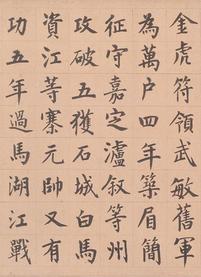 金虎符領武敏舊軍
為萬户四年築眉簡
征守嘉定瀘叙等州
攻破五獲石城白馬
資江等寨元帥又有
功五年過馬湖江戰